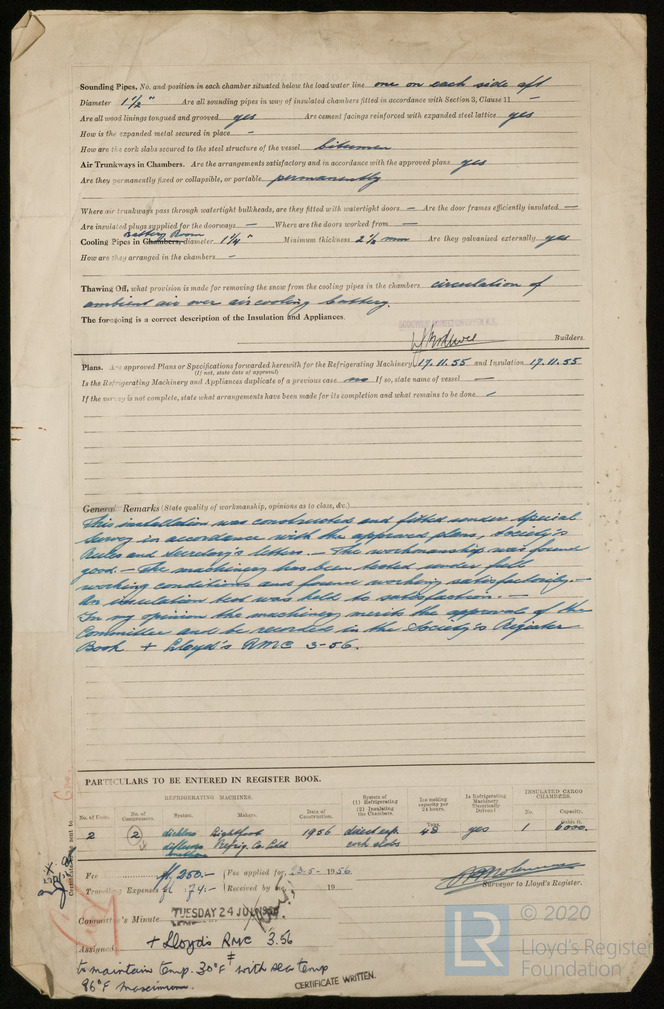 Sounding Pipes, No. and position in each chamber situated below the load water line one on each side aft
Diameter 1 1/2" Are all sounding pipes in way of insulated chambers fitted in accordance with Section 3, Clause 11 —
Are all wood linings tongued and grooved yes Are cement facings reinforced with expanded steel lattice yes
How is the expanded metal secured in place —
How are the cork slabs secured to the steel structure of the vessel bitumen
Air Trunkways in Chambers. Are the arrangements satisfactory and in accordance with the approved plans yes
Are they permanently fixed or collapsible, or portable permanently
Where air trunkways pass through watertight bulkheads, are they fitted with watertight doors — Are the door frames efficiently insulated —
Are insulated plugs supplied for the doorways — Where are the doors worked from —
Battery Room
Cooling Pipes in Chambers, diameter 1 1/4" Minimum thickness 2 1/2 mm Are they galvanised externally yes
How are they arranged in the chambers —
Thawing Off, what provision is made for removing the snow from the cooling pipes in the chambers circulation of
ambient air over air cooling battery.
The foregoing is a correct description of the Insulation and Appliances.
Builders.
Plans. Are approved Plans or Specifications forwarded herewith for the Refrigerating Machinery 17.11.55 and Insulation 17.11.55
(If not, state date of approval)
Is the Refrigerating Machinery and Appliances duplicate of a previous case no If so, state name of vessel —
If the survey is not complete, state what arrangements have been made for its completion and what remains to be done —
General Remarks (State quality of workmanship, opinions as to class, &c.)
This installation was constructed and fitted under Special
Survey in accordance with the approved plans, Society's
Rules and Secretary's letters. — The workmanship was found
good. — The machinery has been tested under full
working conditions and found working satisfactorily. —
An insulation test was held to satisfaction. —
In my opinion the machinery merits the approval of the
Committee and be recorded in the Society's Register
Book + Lloyd's RMC 3-56.
PARTICULARS TO BE ENTERED IN REGISTER BOOK.
REFRIGERATING MACHINES.
No. of Units. No. of Compressors. System. Makers. Date of Construction. System of (1) Refrigerating (2) Insulating the Chambers. Ice melting capacity per 24 hours. Is Refrigerating Machinery Electrically Driven? INSULATED CARGO CHAMBERS. No. Capacity.
Tons. Cubic ft.
2 2 Lightfoot 1956 direct exp. 48 yes 1 6000.
Refrig. Co. Ltd cork slabs
Fee fl. 250.- Fee applied for 23-5-1956
Travelling Expenses fl. 74:- Received by me, 19
Surveyor to Lloyd's Register.
Committee's Minute TUESDAY 24 JUL 1956
Assigned + Lloyd's RMC 3.56
to maintain temp. 30°F with sea temp
86°F maximum.
CERTIFICATE WRITTEN.
LR © 2020
Lloyd's Register
Foundation